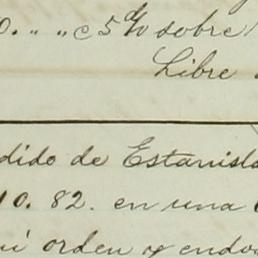 0. „ „ c 5 % sobre
Libre
dido de Estanisla
10. 82. en una
mi orden y endo